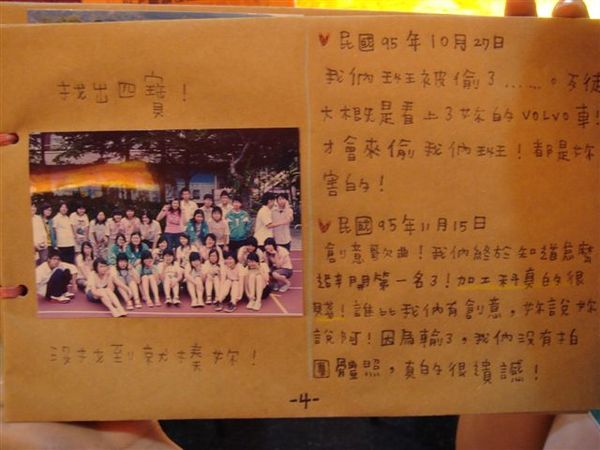 找出四寶！
沒找到就揍妳！
民國95年10月27日
我們班被偷了……。歹徒
大概是看上了妳的VOLVO車！
才會來偷我們班！都是妳
害的！
民國95年11月15日
創意歌曲！我們終於知道怎麼
第一名了！加工科真的很
！誰比我們有創意，妳說妳
說阿！因為輸了，我們沒有拍
團體照，真的很遺憾！
-4-